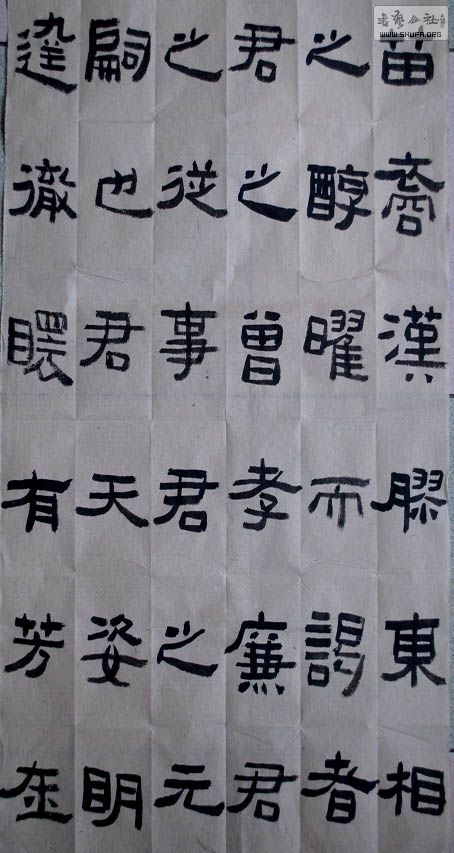 書藝公社
WWW.SHUFA.ORG
苗裔漢膠東相
之醇曜而謁者
君之曾孝廉君
之從事君之元
嗣也君天姿明
達徹有芳